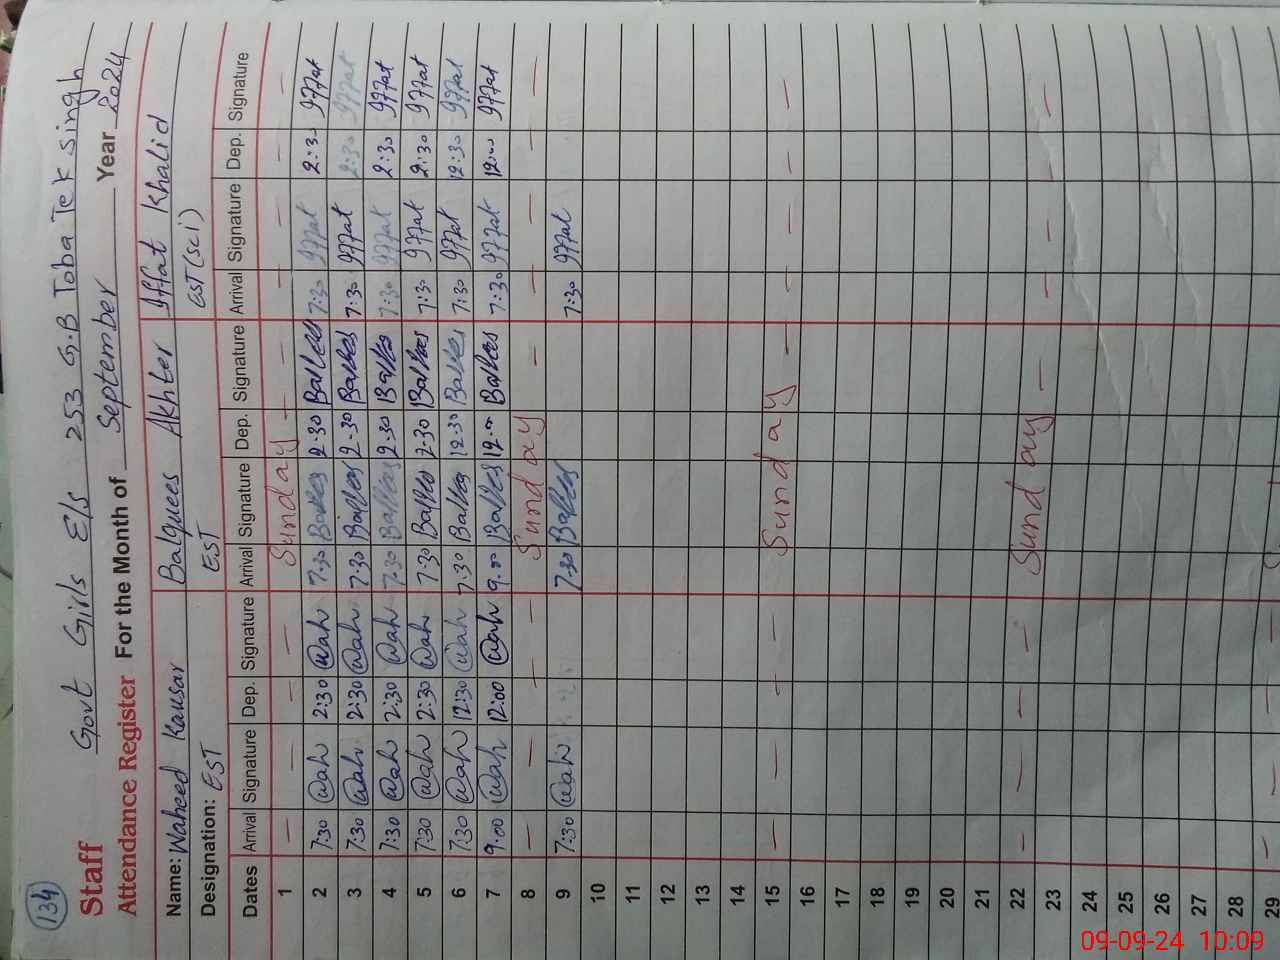 134
Govt Girls E/s 253 G.B Toba Tek Singh
Staff
Attendance Register For the Month of September Year 2024
Name: Waheed Kausar Balquees Akhter Iffat Khalid
Designation: EST EST EST (Sci)
Dates Arrival Signature Dep. Signature Arrival Signature Dep. Signature Arrival Signature Dep. Signature
1 — — — — Sunday — — — — — —
2 7:30 @ah 2:30 @ah 7:30 Balkes 2:30 Balkes 7:30 Iffat 2:30 Iffat
3 7:30 @ah 2:30 @ah 7:30 Balkes 2:30 Balkes 7:30 Iffat 2:30 Iffat
4 7:30 @ah 2:30 @ah 7:30 Balkes 2:30 Balkes 7:30 Iffat 2:30 Iffat
5 7:30 @ah 2:30 @ah 7:30 Balkes 2:30 Balkes 7:30 Iffat 2:30 Iffat
6 7:30 @ah 12:30 @ah 7:30 Balkes 12:30 Balkes 7:30 Iffat 12:30 Iffat
7 9:00 @ah 12:00 @ah 9:00 Balkes 12:00 Balkes 7:30 Iffat 12:00 Iffat
8 — — — — Sunday — — — — —
9 7:30 @ah 7:30 Balkes 7:30 Iffat
10
11
12
13
14
15 — — — — Sunday — — — —
16
17
18
19
20
21
22 — — — — Sunday — — — — —
23
24
25
26
27
28
29 — — — —
09-09-24 10:09